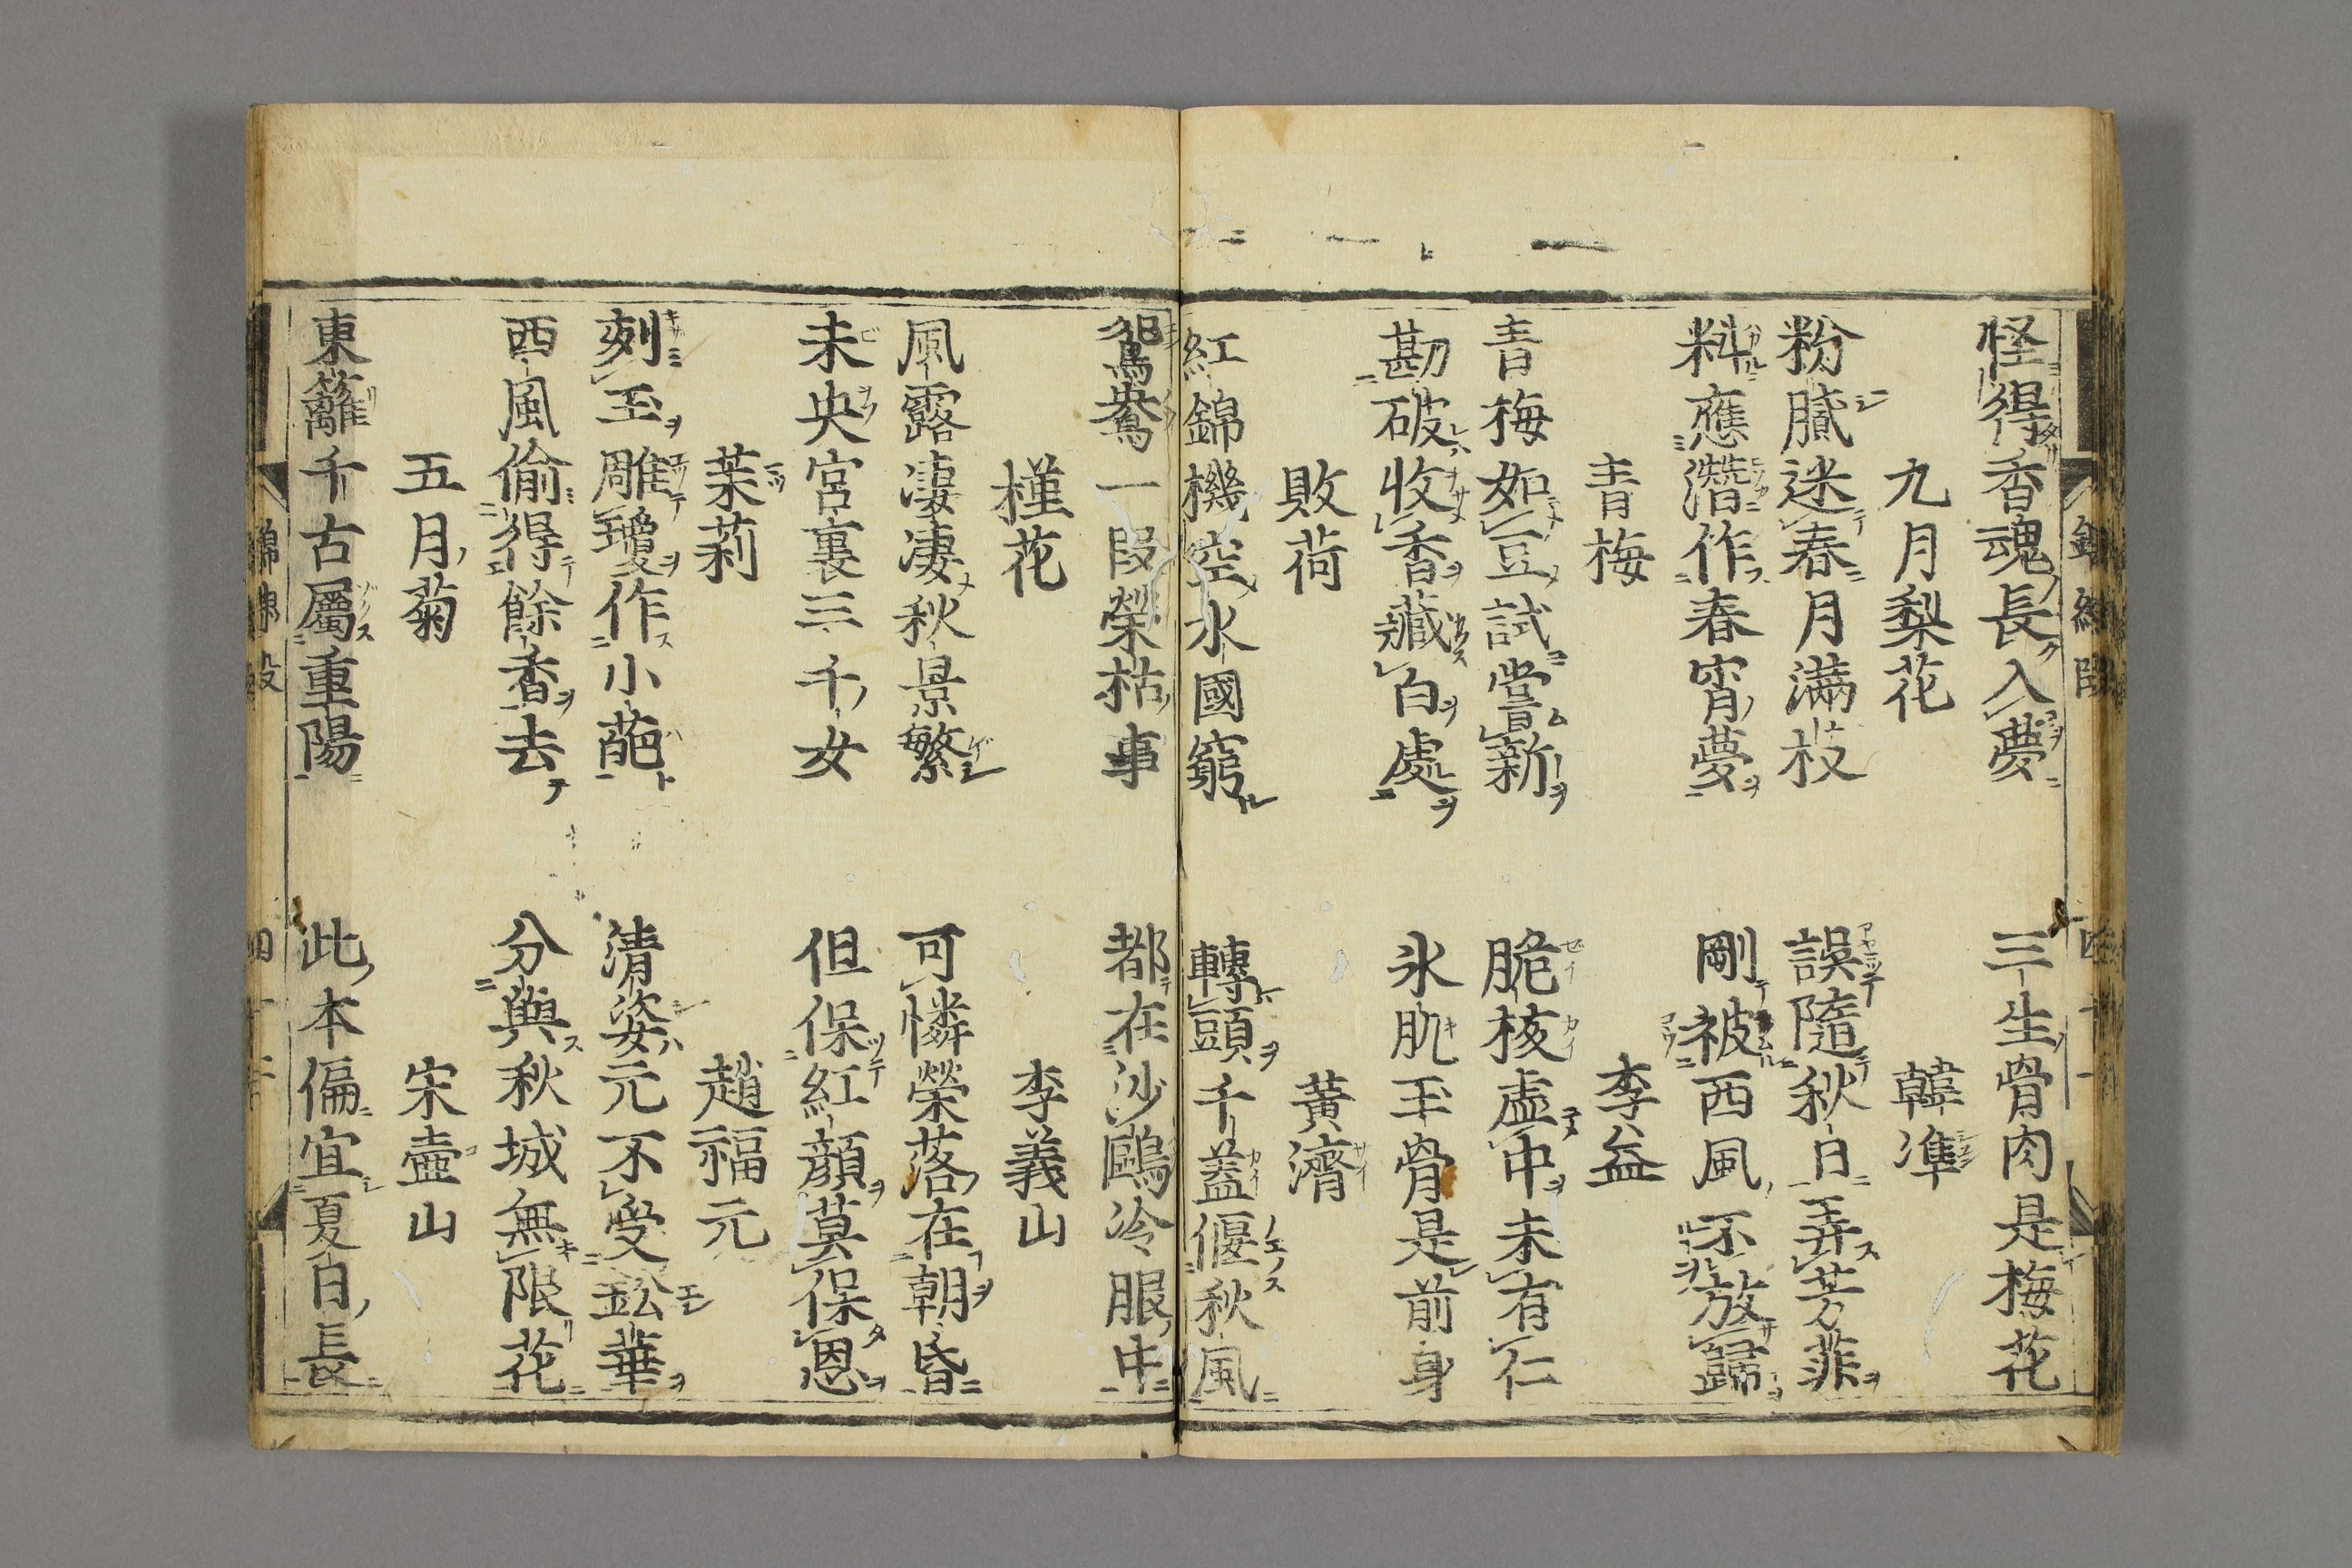 怪得香魂長入夢 三生骨肉是梅花
九月梨花 韓準
粉膩迷春月滿枝 誤隨秋日弄芳菲
料應潛作春宵夢 剛被西風不放歸
青梅 李益
青梅如豆試嘗新 脆核虛中未有仁
勘破收香藏白處 氷肌玉骨是前身
敗荷 黃濟
紅錦機空水國窮 轉頭千蓋偃秋風
鴛鴦一段榮枯事 都在沙鷗冷眼中
槿花 李義山
風露淒淒秋景繁 可憐榮落在朝昏
未央宮裏三千女 但保紅顏莫保恩
茉莉 趙福元
刻玉雕瓊作小葩 清姿元不受鉛華
西風偷得餘香去 分與秋城無限花
五月菊 宋壺山
東籬千古屬重陽 此本偏宜夏日長